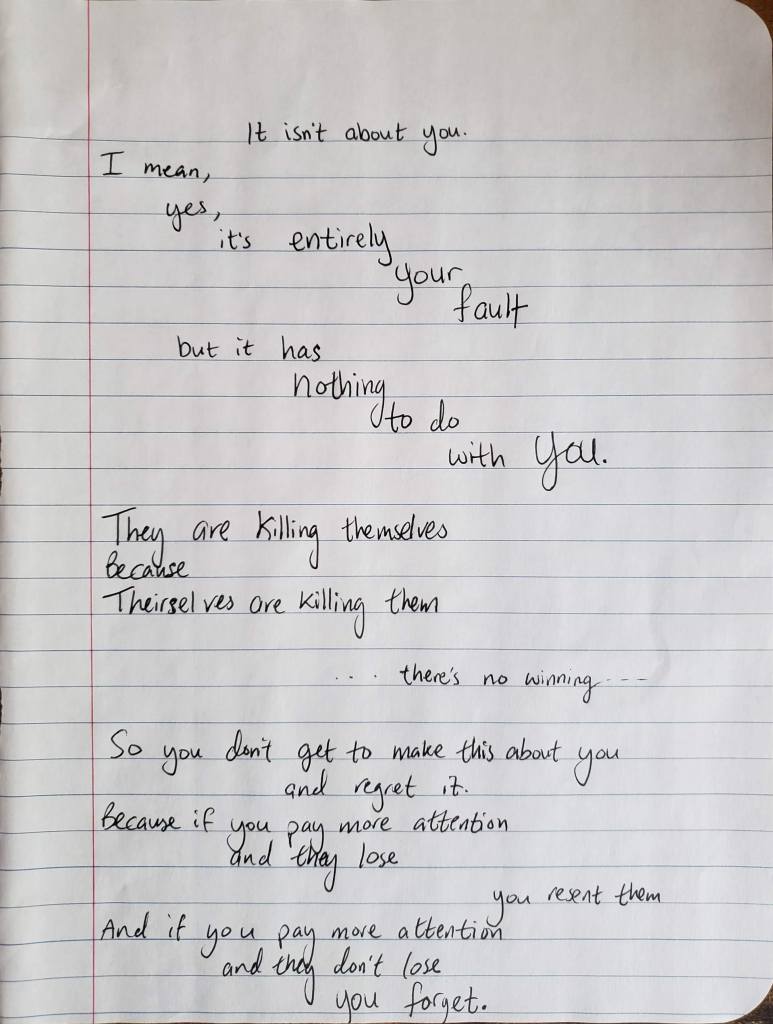 It isn't about you.
I mean,
yes,
it's entirely
your
fault
but it has
nothing
to do
with you.
They are killing themselves
because
Theirselves are killing them
.... there's no winning ---
So you don't get to make this about you
and regret it.
Because if you pay more attention
and they lose
you resent them
And if you pay more attention
and they don't lose
you forget.